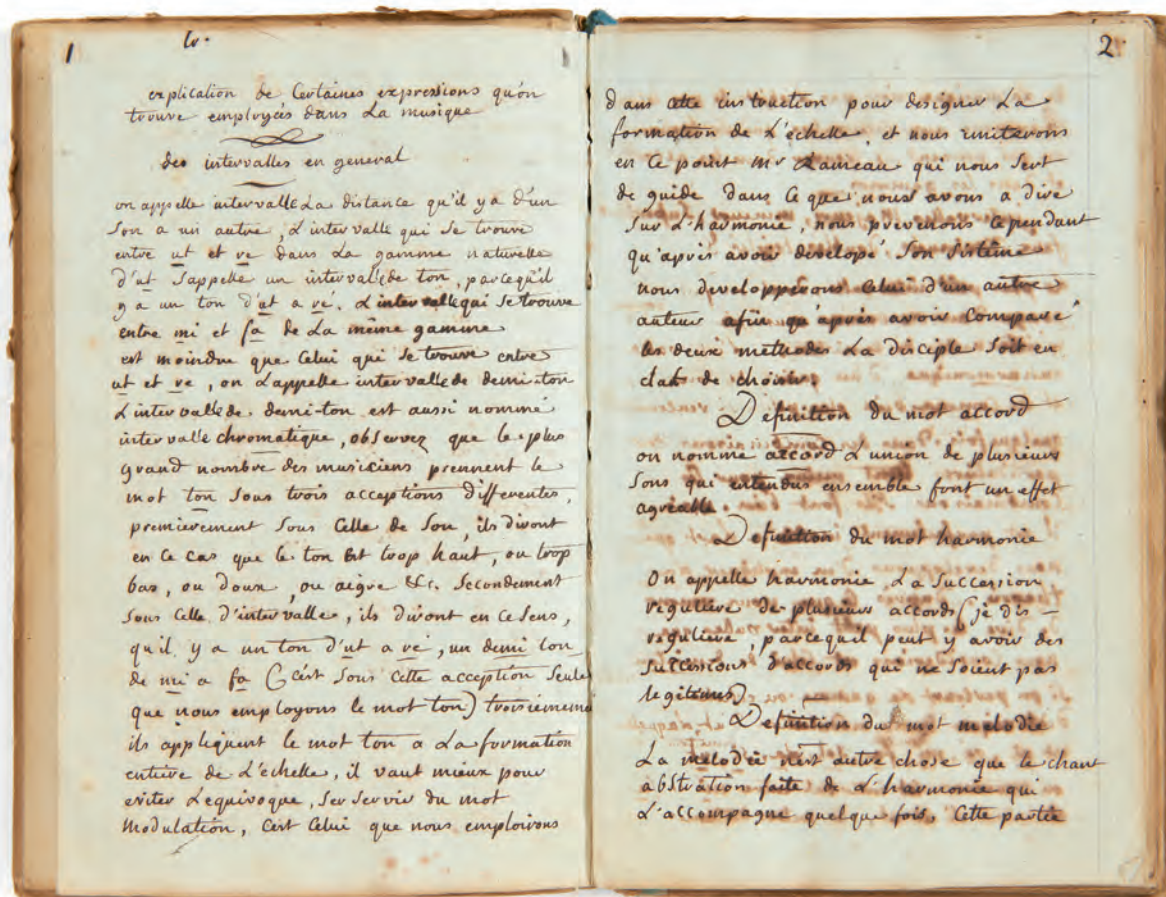 1
explication de Certaines expressions qu'on
trouve employées dans La musique
des intervalles en general
on appelle intervalle La distance qu'il y a d'un
Son a un autre, L'intervalle qui se trouve
entre ut et re dans La gamme naturelle
d'ut s'appelle un intervalle de ton, parcequ'il
y a un ton d'ut a re. L'intervalle qui se trouve
entre mi et fa de La même gamme
est moindre que Celui qui se trouve entre
ut et re, on L'appelle intervalle de demi-ton
L'intervalle de demi-ton est aussi nommé
intervalle chromatique, observez que le plus
grand nombre des musiciens prennent le
mot ton sous trois acceptions differentes,
premierement sous Celle de Son, ils diront
en ce cas que le ton est trop haut, ou trop
bas, ou doux, ou aigre &c. secondement
sous Celle d'intervalle, ils diront en ce sens,
qu'il y a un ton d'ut a re, un demi ton
de mi a fa (c'est sous cette acception seule
que nous employons le mot ton) troisiememe
ils appliquent le mot ton a La formation
entiere de L'echelle, il vaut mieux pour
eviter L'equivoque, se servir du mot
Modulation, C'est Celui que nous emploirons
2
dans cette instruction pour designer La
formation de L'echelle et nous imiterons
en Ce point Mr Rameau qui nous sert
de guide dans Ce que nous avons a dire
sur L'harmonie, nous prevenons Cependant
qu'après avoir developé Son Sistême
nous developperons Celui d'un autre
auteur afin qu'après avoir Comparé
les deux methodes La disciple soit en
etat de choisir.
Definition du mot accord
on nomme accord L'union de plusieurs
Sons qui entendus ensemble font un effet
agréable.
Definition du mot harmonie
On appelle harmonie La Succession
reguliere de plusieurs accords (je dis —
reguliere, parcequil peut y avoir des
successions d'accords qui ne soient pas
legitimes)
Definition du mot mélodie
La mélodie n'est autre chose que le chant
abstration faite de L'harmonie qui
L'accompagne quelque fois, Cette partie